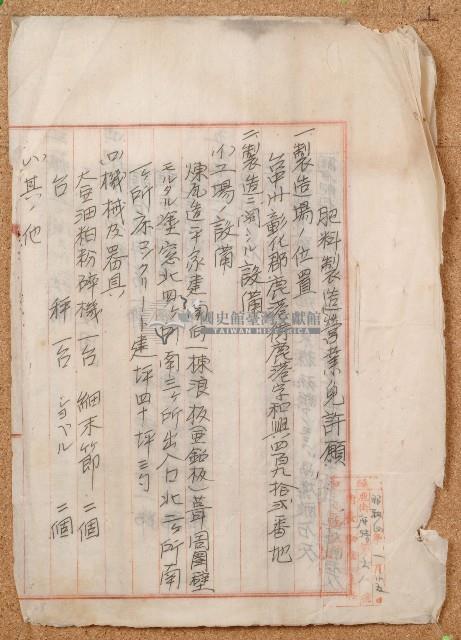 肥料製造営業免許願
一、製造場ノ位置
台中州彰化郡鹿港街鹿港字和興四百九拾弐番地
二、製造ニ関スル設備
(イ)工場ノ設備
煉瓦造平家建南向一棟浪板(亜鉛板)葺周囲壁
モルタル塗窓北四ヶ所南三ヶ所出入口北二ヶ所南
一ヶ所床コンクリート建坪四十坪三勺
(ロ)機械及器具
大豆油粕粉碎機 一台 細末篩 二個
台秤 一台 ショベル 二個
(ハ)其ノ他
國史館臺灣文獻館
TAIWAN HISTORICA